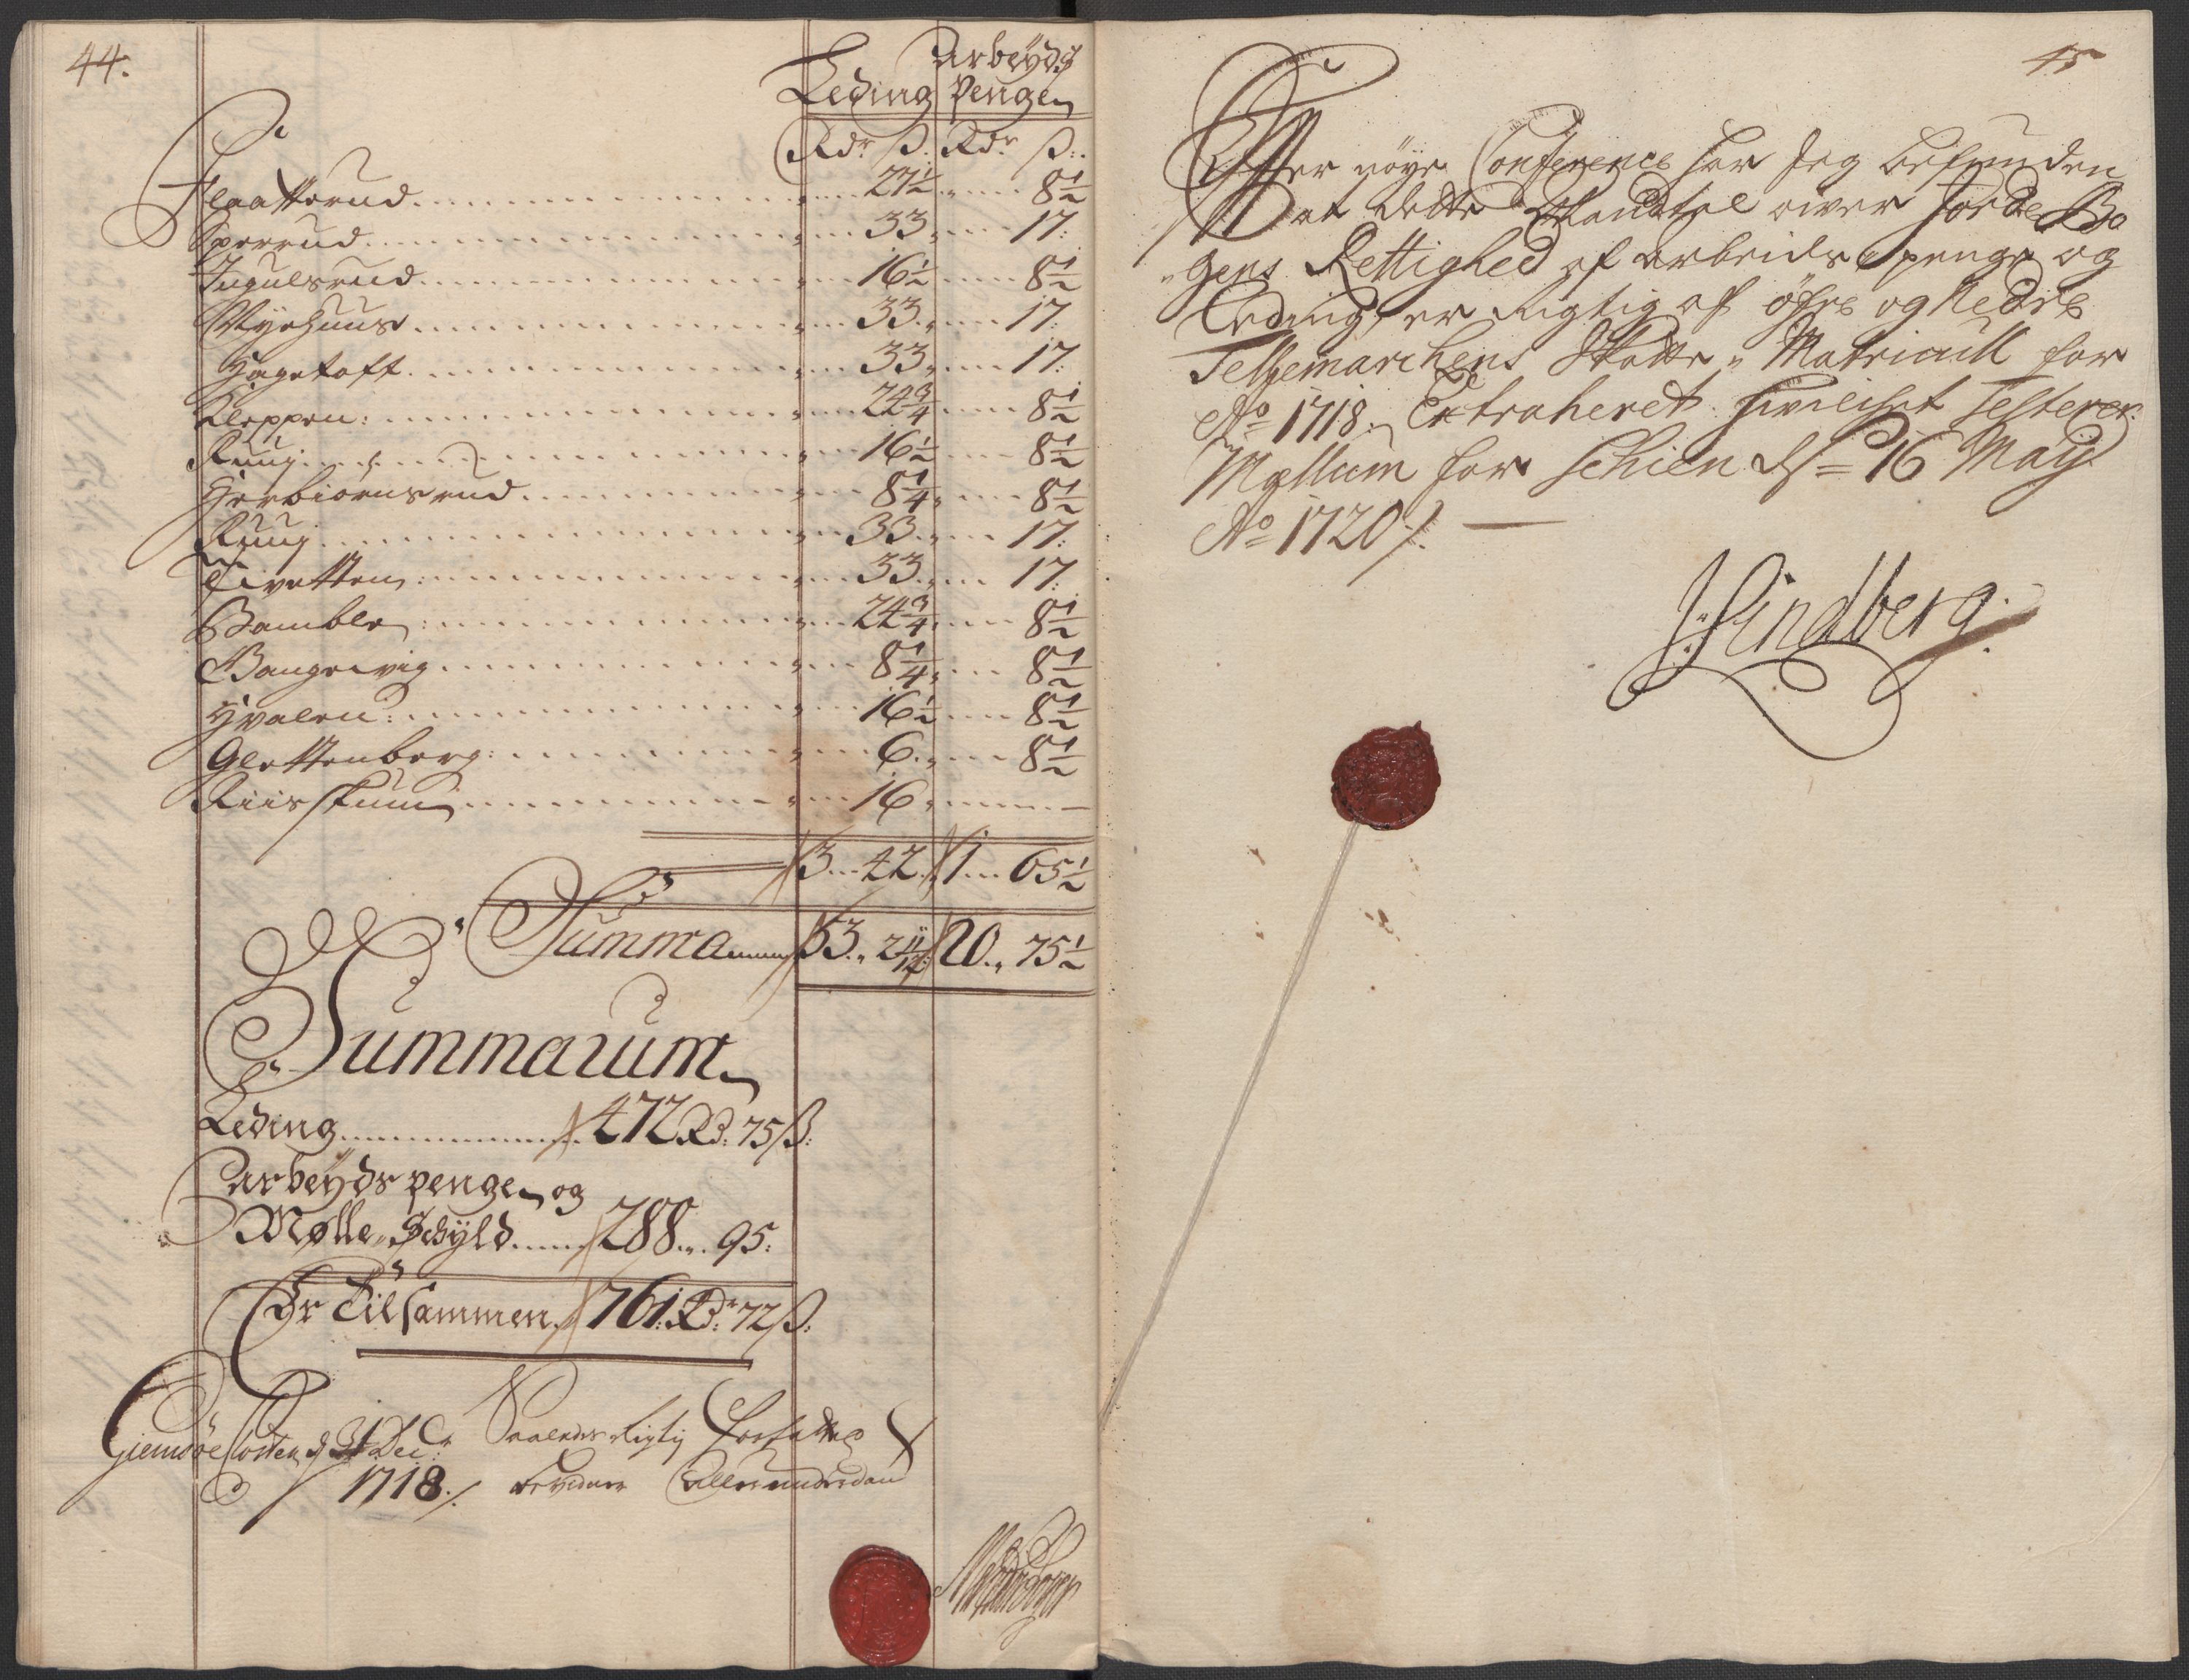 44.
Arbeyds
Leding Pengen
Rdr ß. Rdr ß:
Flaatterud 27½ 8½
Sperrud 33 17:
Ingulsrud 16½ 8½
Myrhuus 33 17:
Hagetoft 33 17:
Kleppen: 24¾ 8½
Ruuj 16½ 8½
Herbiörnsrud 8¼ 8½
Ruuj 33 17:
Tvetten: 33 17:
Bamble: 24¾ 8½
Bangevig 8¼ 8½
Hvalen: 16½ 8½
Glettenberg: 6 8½
Riis 16
3 42 1 65½
Summa 53 2 11/12 20 75½
Summarum
Leding 472 Rd: 75 ß:
Arbeyds pengen og
Mølle Schyld 288 95:
Er Tilsammen 761 Rd: 72 ß:
Giemsöe Closter d 31 Dec:
1718 ./.
45
Efter nöye Conference har Jeg befunden
at dette Mandtal over Jorde Bo
gens Rettighed af arbeids penge og
Leding, er Rigtig af öfre og Nedre
Tellemarchens Skatte Matricull for
Ao 1718. Extraheret
Mællum for Schien d 16 May
Ao 1720 ./.
J: Lindberg.